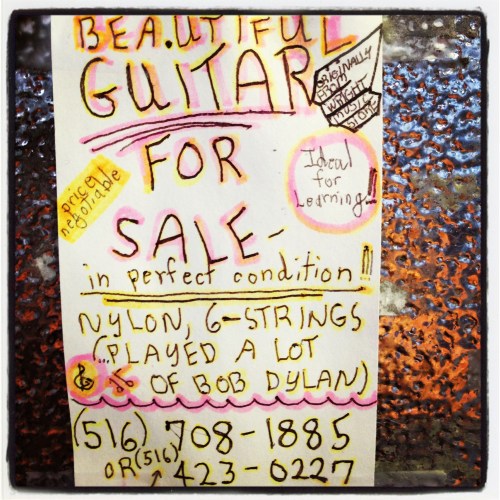 BEAUTIFUL
GUITAR
ORIGINALLY
FROM
WRIGHT
MUSIC
STORE
FOR
Ideal
for
Learning!!
price
negotiable
SALE-
in perfect condition!!!
NYLON, 6-STRINGS
(...PLAYED A LOT
OF BOB DYLAN)
(516) 708-1885
OR (516)
423-0227